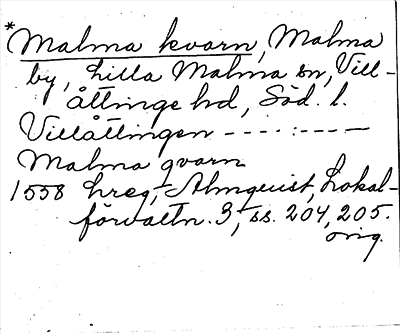 *Malma kvarn, Malma
by, Lilla Malma sn, Vill-
åttinge hd, Söd. l.
Villåttingen - - - - : - - - -
Malma qvarn
1558 hreg, Almquist, Lokal-
förvaltn. 3, ss. 204, 205.
orig.